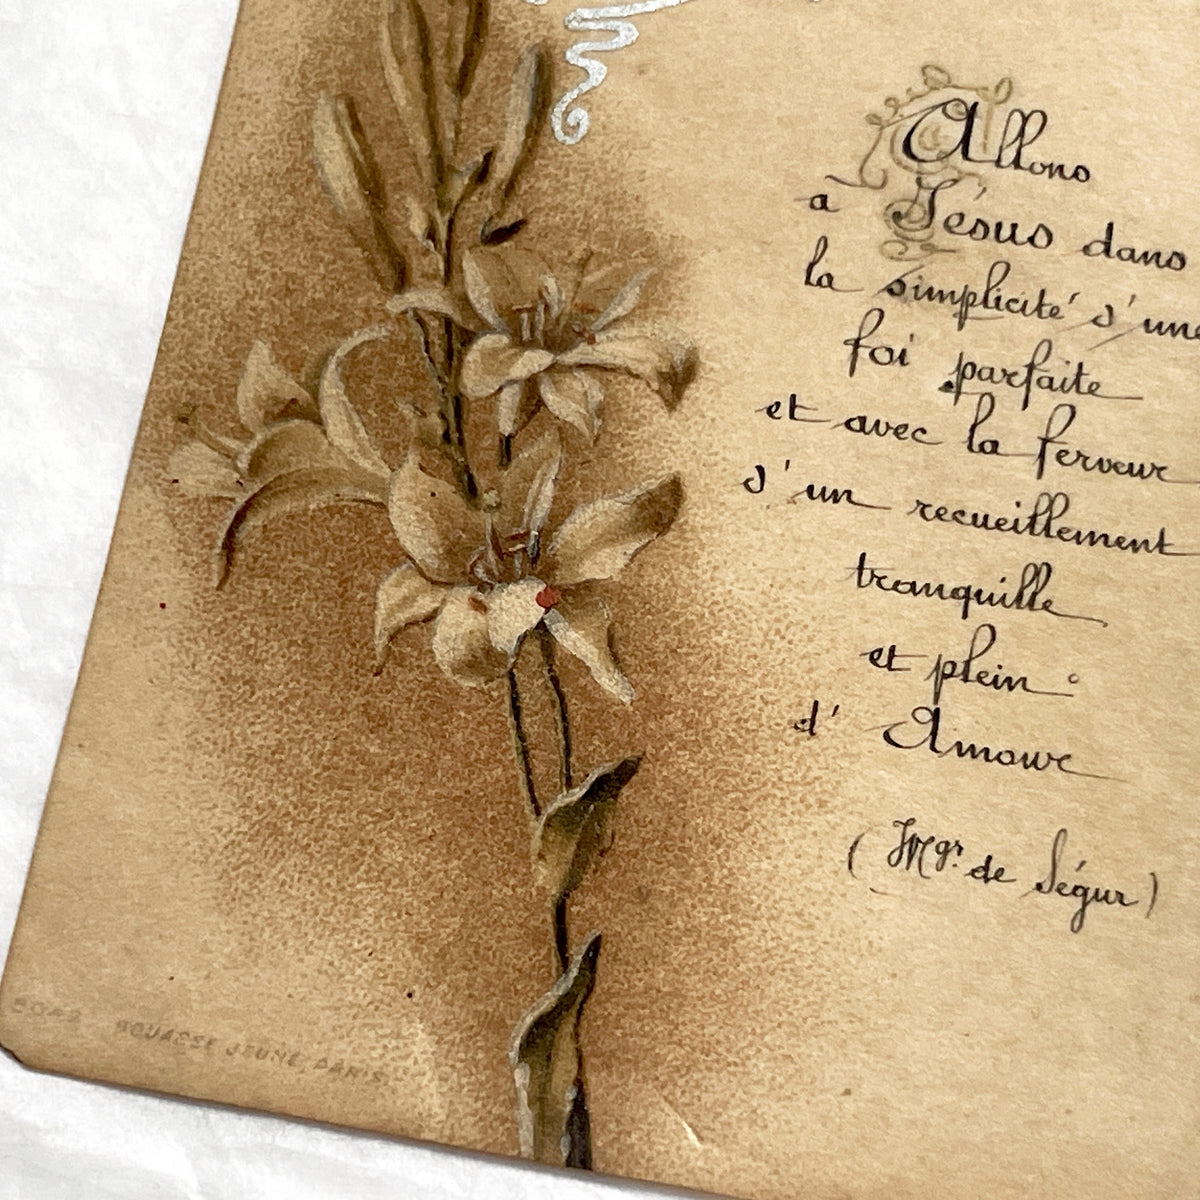 Allons
à Jésus dans
la simplicité d'une
foi parfaite
et avec la ferveur
d'un recueillement
tranquille
et plein
d'Amour
(Mgr. de Ségur)
BOUASSE JEUNE PARIS